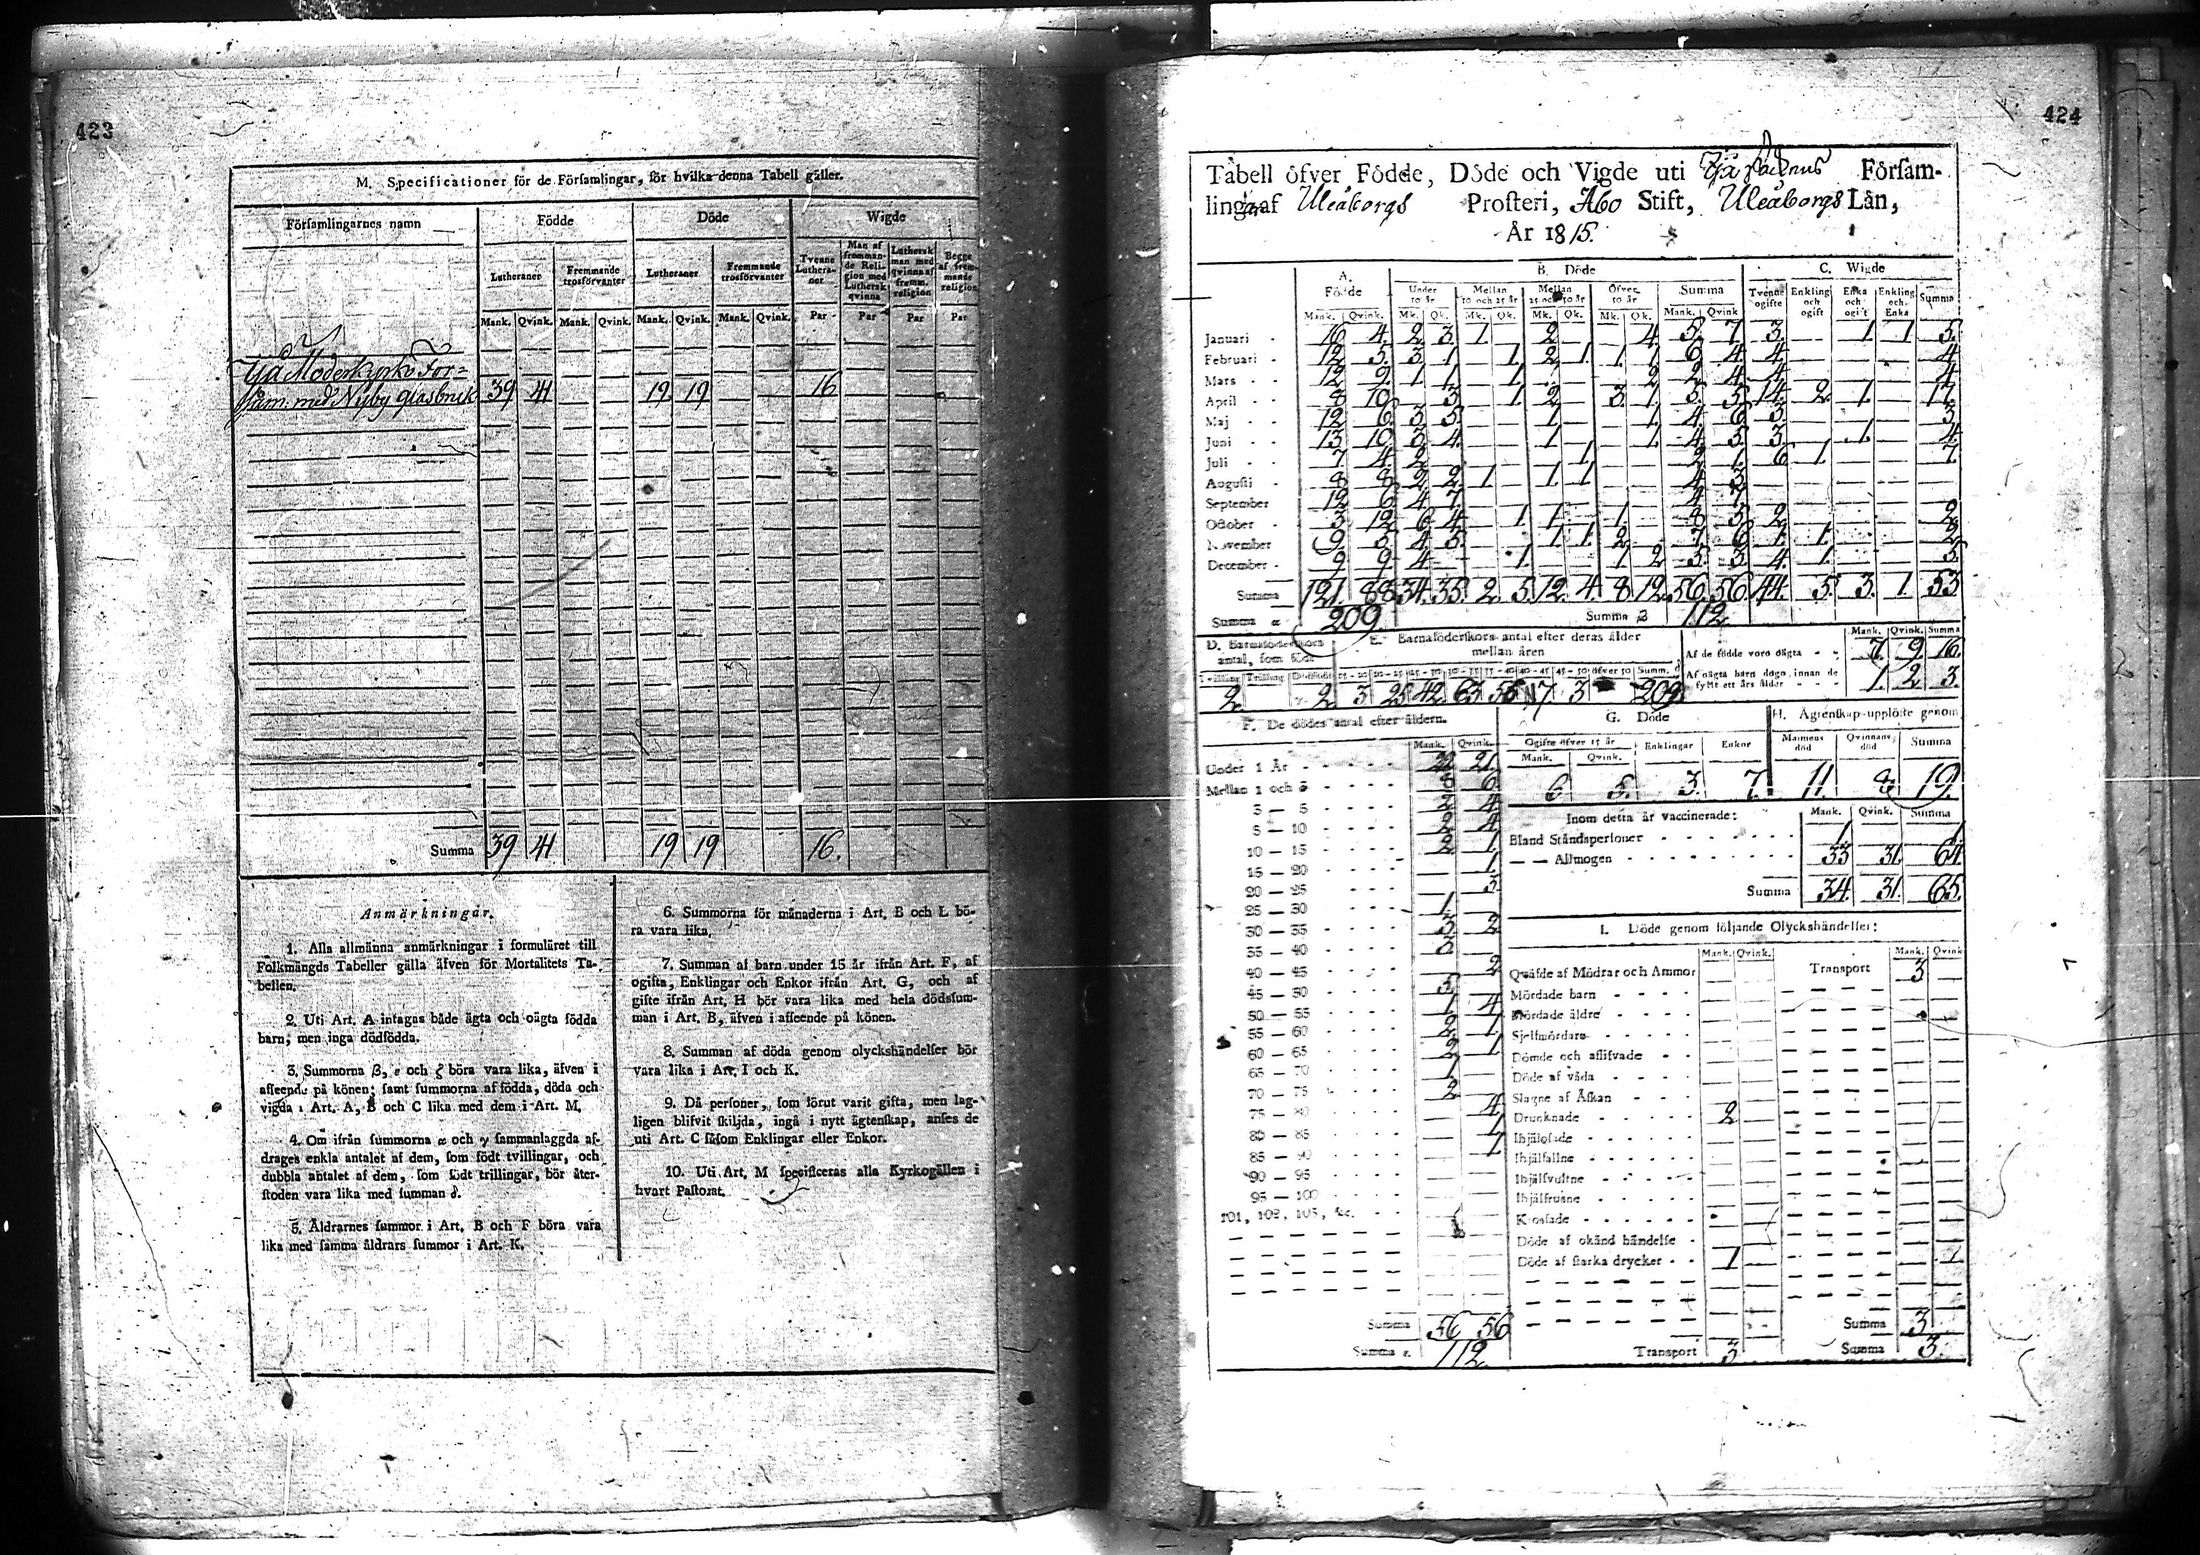 423
M. Specificationer för de Församlingar, för hvilka denna Tabell gäller.
Församlingarnes namn
Födde
Döde
Wigde
Lutheraner
Fremmande trosförvanter
Lutheraner
Fremmande trosförvanter
Tvenne Lutheraner
Man af fremmande Religion med Luthersk qvinna
Luthersk man med qvinna af fremm. religion
Begge af fremmande religion
Mank. Qvink. Mank. Qvink. Mank. Qvink. Mank. Qvink. Par Par Par Par
Ijå Moderkyrko För=
sam. med Nyby glasbruk 39 41 19 19 16
Summa 39 41 19 19 16.
Anmärkningar.
1. Alla allmänna anmärkningar i formuläret till
Folkmängds Tabeller gälla äfven för Mortalitets Ta-
bellen.
2. Uti Art. A intagas både ägta och oägta födda
barn; men inga dödfödda.
3. Summorna β, ε och ζ böra vara lika, äfven i
afseende på könen; samt summorna af födda, döda och
vigda i Art. A, B och C lika med dem i Art. M.
4. Om ifrån summorna α och γ sammanlaggda af-
drages enkla antalet af dem, som födt tvillingar, och
dubbla antalet af dem, som födt trillingar, bör åter-
stoden vara lika med summan δ.
5. Åldrarnes summor i Art. B och F böra vara
lika med samma åldrars summor i Art. K.
6. Summorna för månaderna i Art. B och L bö-
ra vara lika.
7. Summan af barn under 15 år ifrån Art. F, af
ogifta, Enklingar och Enkor ifrån Art. G, och af
gifte ifrån Art. H bör vara lika med hela dödssum-
man i Art. B, äfven i afseende på könen.
8. Summan af döda genom olyckshändelser bör
vara lika i Art. I och K.
9. Då personer, som förut varit gifta, men lag-
ligen blifvit skiljda, ingå i nytt ägtenskap, anses de
uti Art. C såsom Enklingar eller Enkor.
10. Uti Art. M specificeras alla Kyrkogällen i
hvart Pastorat.
424
Tabell öfver Födde, Döde och Vigde uti Församlingar
af Uleåborgs Prosteri, Åbo Stift, Uleåborgs Län,
År 1815.
A. Födde
B. Döde
C. Wigde
Under 10 år
Mellan 10 och 25 år
Mellan 25 och 50 år
Öfver 50 år
Summa
Tvenne ogifte
Enkling och ogift
Enka och ogift
Enkling och Enka
Summa
Mank. Qvink. Mk. Qk. Mk. Qk. Mk. Qk. Mk. Qk. Mank. Qvink
Januari 16 4 2 3 1 2 4 5 7 3 1 1 5
Februari 12 5 3 1 1 2 1 1 1 6 4 4 4
Mars 12 9 1 1 1 2 2 4 4 4
April 8 10 3 1 2 3 1 5 5 14 2 1 17
Maj 12 6 3 5 1 1 4 6 3 3
Juni 13 10 3 4 1 1 4 5 3 1 4
Juli 7 4 2 1 2 1 6 1 7
Augusti 8 8 2 2 1 1 1 4 3
September 12 6 4 7 4 7
October 3 12 6 4 1 1 1 8 5 2 2
November 9 5 4 5 1 1 2 7 6 1 1 2
December 9 9 4 1 1 2 5 3 4 1 5
Summa 121 88 34 35 2 5 12 4 8 12 56 56 44 5 3 1 53
Summa α 209
Summa β 112
D. Barnaföderskors antal, som födt
E. Barnaföderskors antal efter deras ålder
mellan åren
Mank. Qvink. Summa
Af de födde voro oägta 7 9 16
Af oägta barn dogo innan de
fyllt ett års ålder 1 2 3
2 2 3 25 42 63 17 3 209
F. De dödes antal efter åldern.
Mank. Qvink.
Under 1 År 21
Mellan 1 och 3 6
3 — 5 2 4
5 — 10 2 4
10 — 15 2 1
15 — 20 1
20 — 25 3
25 — 30 1
30 — 35 3 2
35 — 40 5
40 — 45 2
45 — 50 3
50 — 55 1 4
55 — 60 2 1
60 — 65 2 1
65 — 70 1
70 — 75 2
75 — 80 4
80 — 85 1
85 — 90
90 — 95
95 — 100
101, 102, 103, &c.
Summa 56 56
Summa ε. 112
G. Döde
Ogifte öfver 15 år
Enklingar
Enkor
Mank. Qvink.
6 5 3 7
H. Ägtenskap upplöste genom
Mannens död
Qvinnans död
Summa
11 8 19
Inom detta år vaccinerade: Mank. Qvink. Summa
Bland Ståndspersoner 1 1
— — Allmogen 33 31 64
Summa 34 31 65
I. Döde genom följande Olyckshändelser:
Mank. Qvink.
Mank. Qvink
Qväfde af Mödrar och Ammor
Transport 3
Mördade barn
Mördade äldre
Sjelfmördare
Dömde och aflifvade
Döde af våda
Slagne af Åskan
Drunknade 2
Ihjälfallne
Ihjälfrusne
Krossade
Döde af okänd händelse
Döde af starka drycker 1
Summa 3
Transport 3
Summa 3